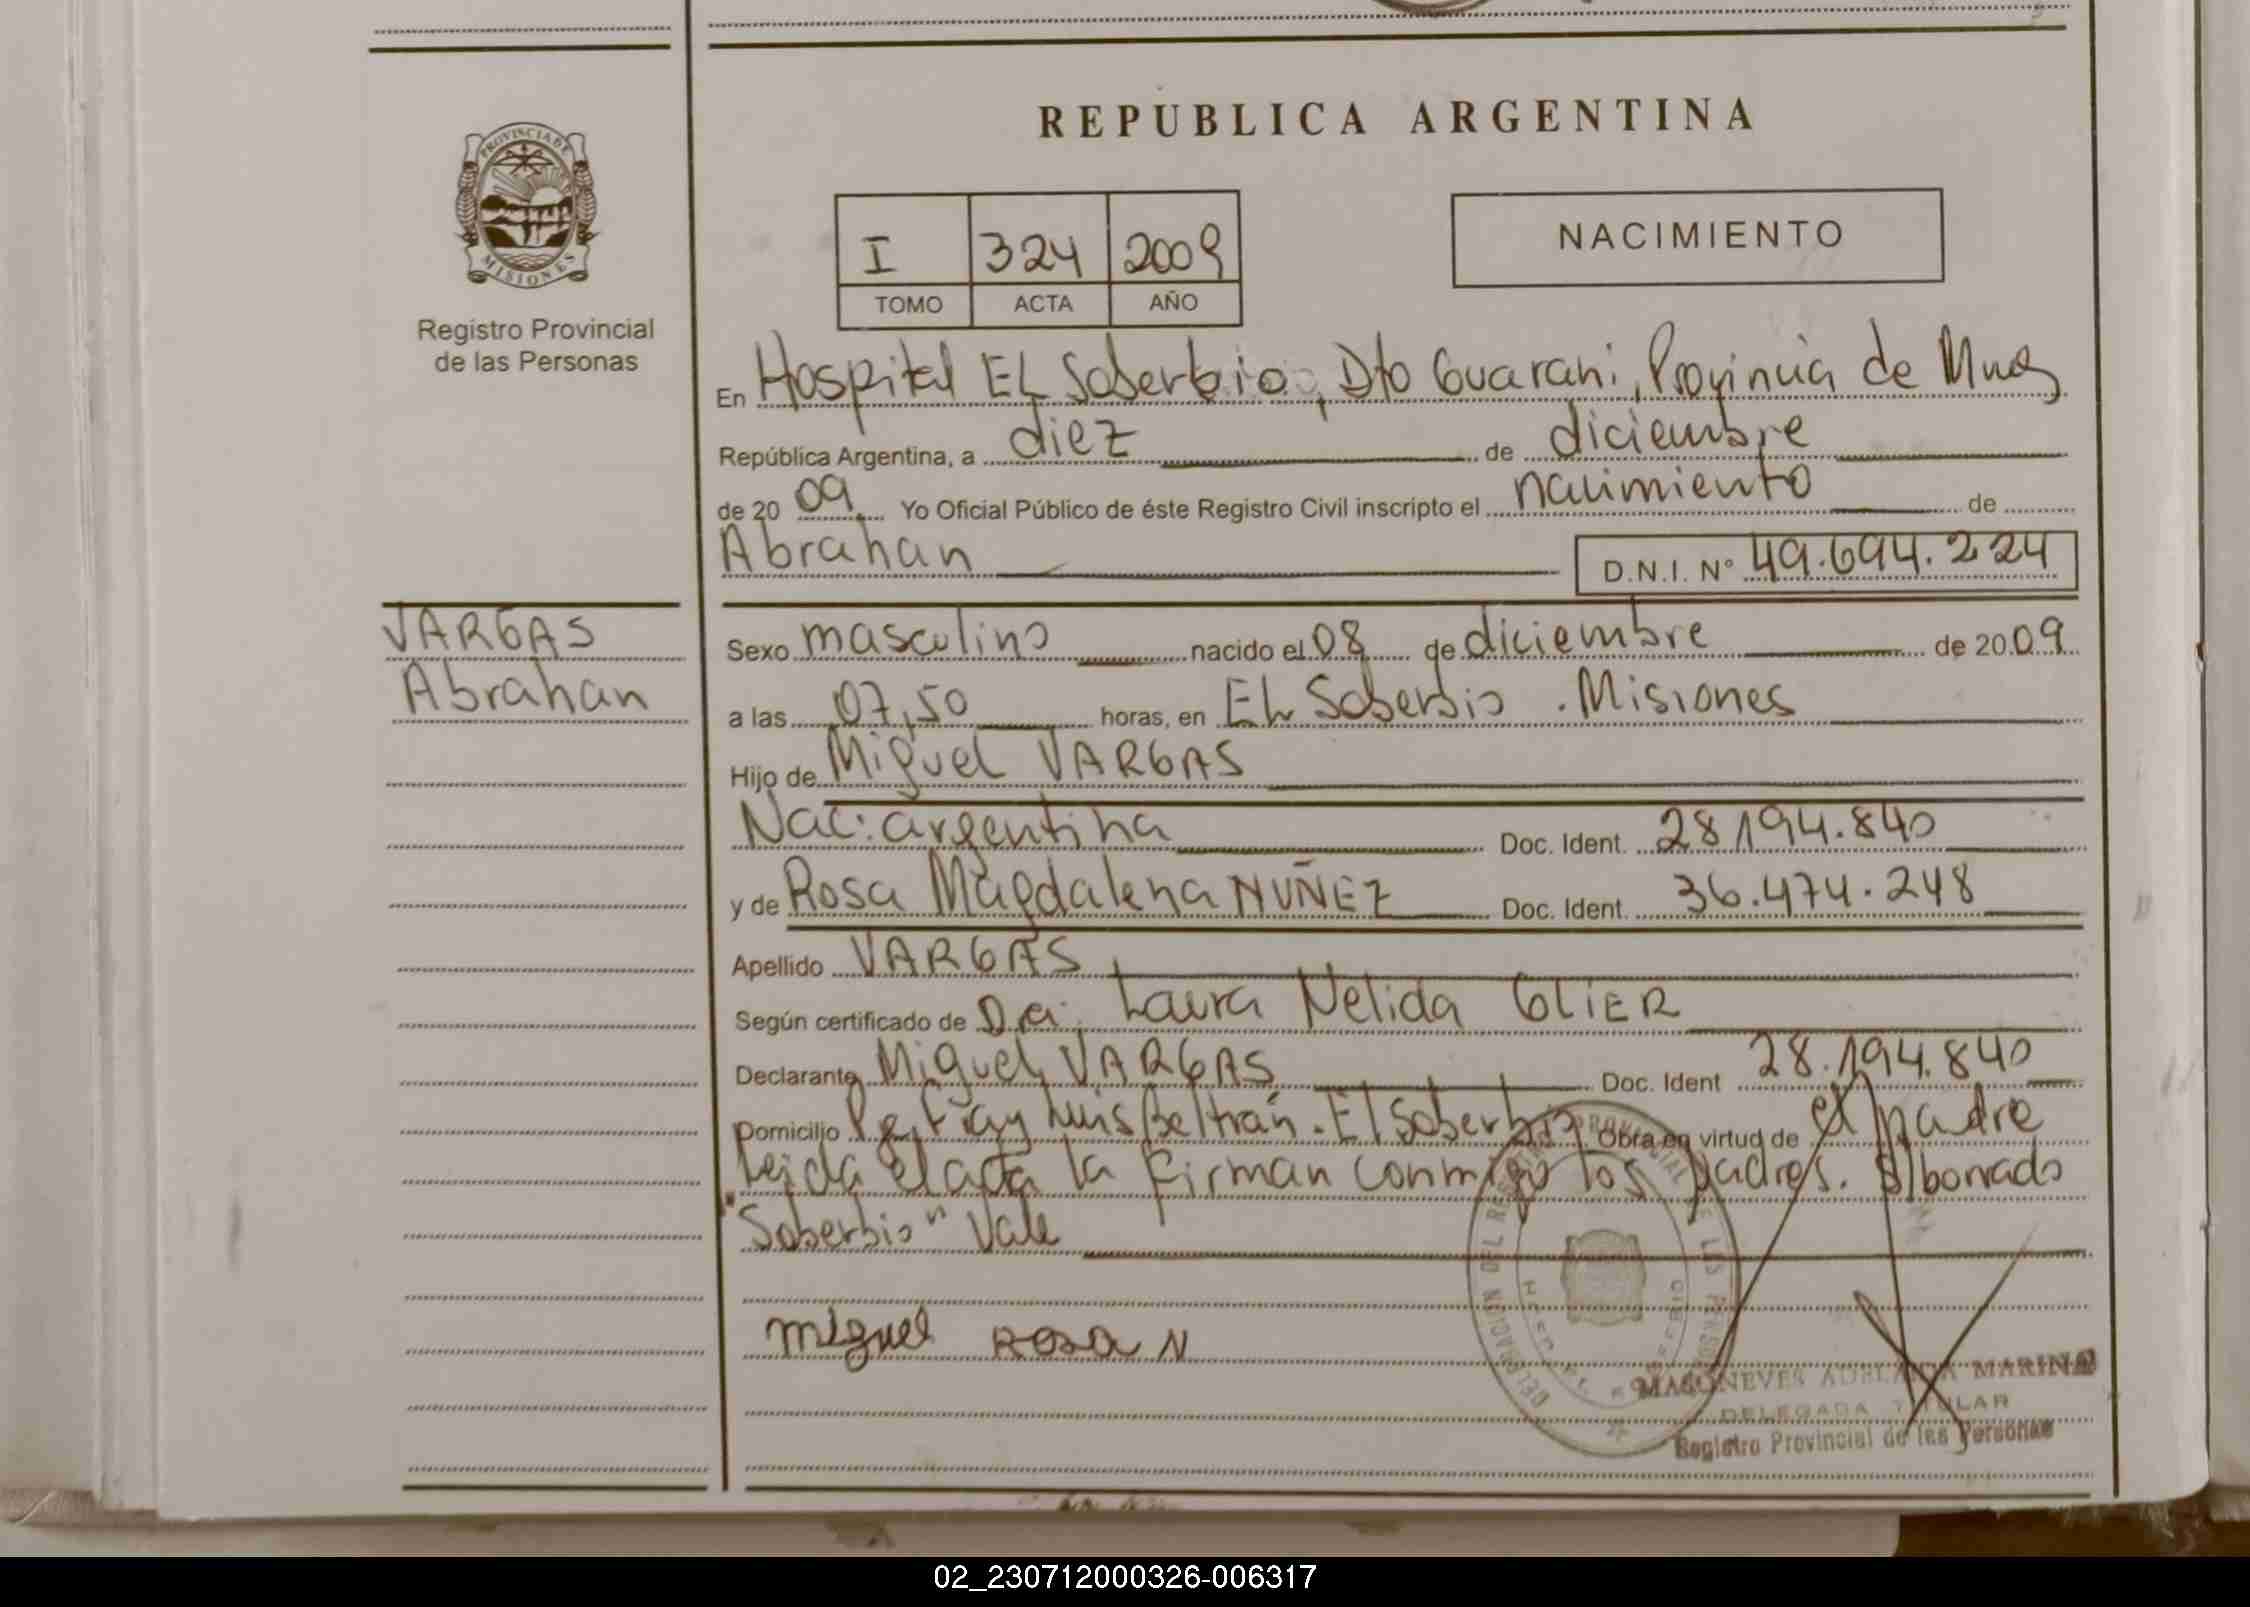 REPUBLICA ARGENTINA
PROVINCIA DE MISIONES
Registro Provincial
de las Personas
I 324 2009
TOMO ACTA AÑO
NACIMIENTO
En Hospital EL Soberbio, Dto Guarani, Provincia de Mnes
República Argentina, a diez de diciembre
de 20 09. Yo Oficial Público de éste Registro Civil inscripto el nacimiento de
Abrahan D.N.I. Nº 49.694.224
VARGAS
Abrahan
Sexo masculino nacido el 08 de diciembre de 20 09
a las 07,50 horas, en EL Soberbio . Misiones
Hijo de Miguel VARGAS
Nac: argentina Doc. Ident. 28.194.840
y de Rosa Magdalena NUÑEZ Doc. Ident. 36.474.248
Apellido VARGAS
Según certificado de Dra. Laura Nelida GLIER
Declarante Miguel VARGAS Doc. Ident 28.194.840
Domicilio Fray Luis Beltrán. El Soberbio Obra en virtud de el padre
Leida el acta la firman conmigo los padres. S/borrado
"Soberbio" Vale
miguel ROSA N
DELEGACION DEL REGISTRO PROVINCIAL DE LAS PERSONAS
ADELAIDA MARINA
DELEGADA TITULAR
Registro Provincial de las Personas
02_230712000326-006317